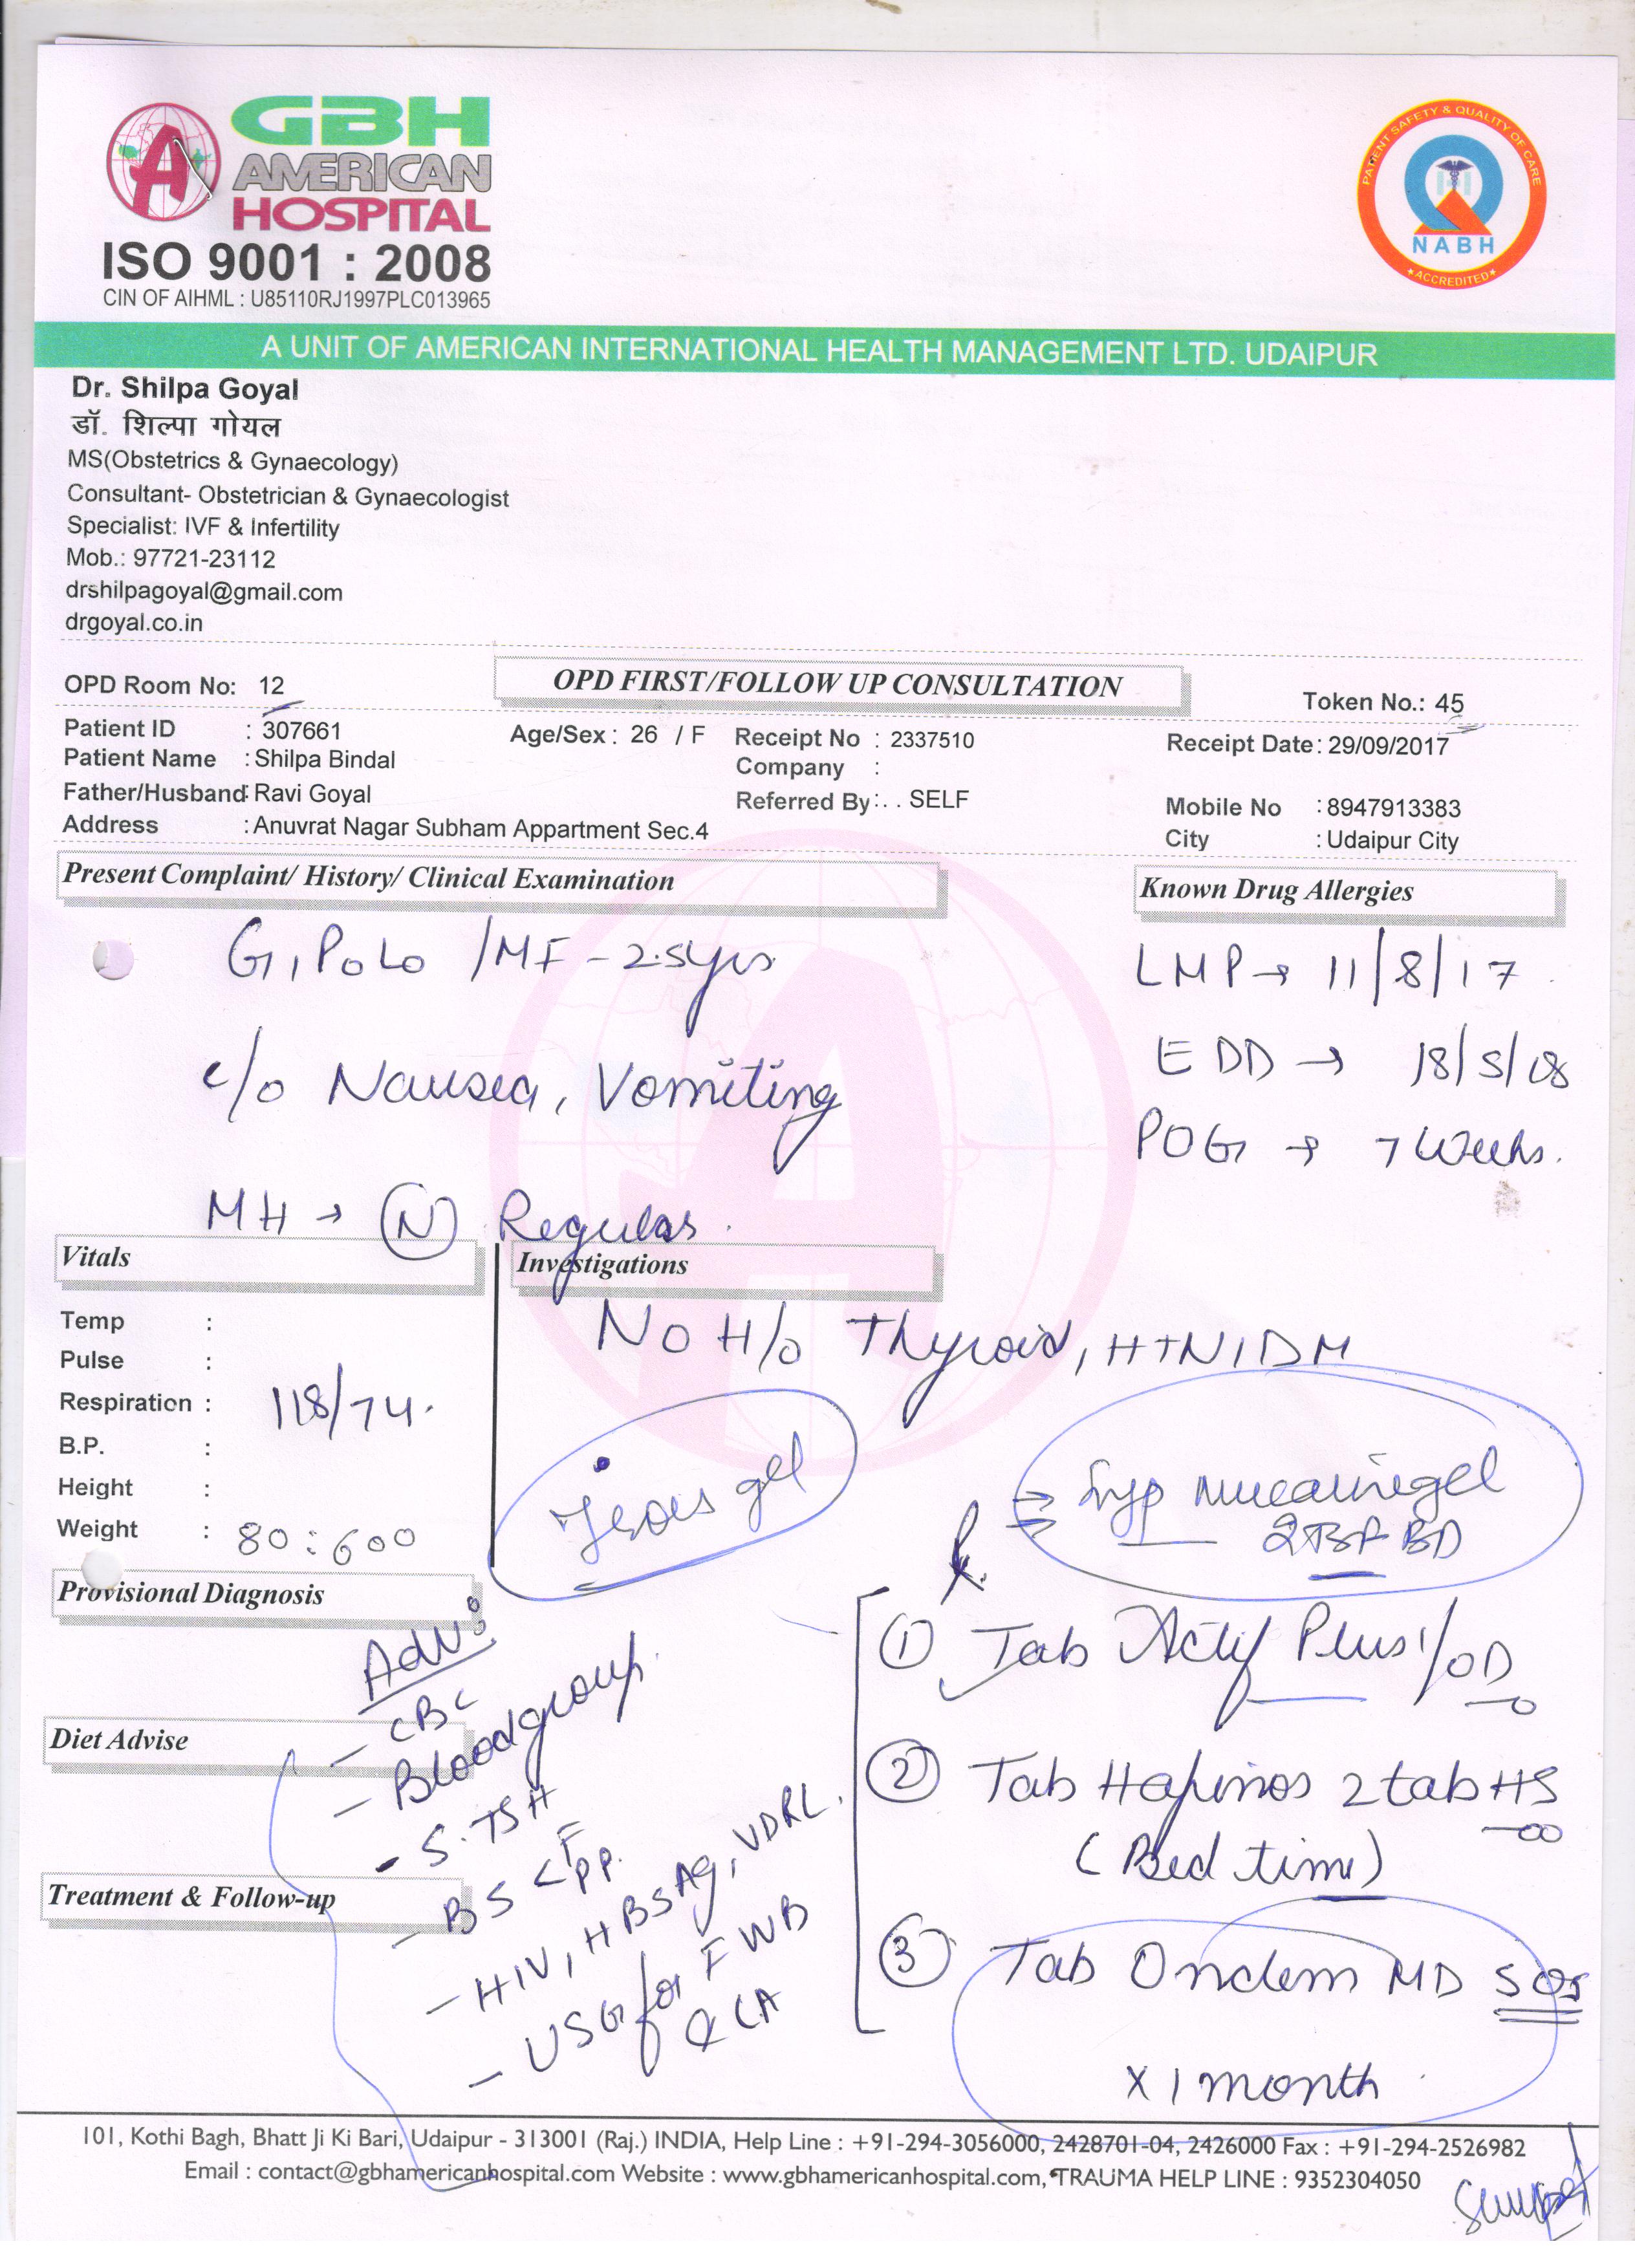 GBH
AMERICAN
HOSPITAL
ISO 9001 : 2008
CIN OF AIHML : U85110RJ1997PLC013965
PATIENT SAFETY & QUALITY OF CARE
NABH
ACCREDITED
A UNIT OF AMERICAN INTERNATIONAL HEALTH MANAGEMENT LTD. UDAIPUR
Dr. Shilpa Goyal
डॉ. शिल्पा गोयल
MS(Obstetrics & Gynaecology)
Consultant- Obstetrician & Gynaecologist
Specialist: IVF & Infertility
Mob.: 97721-23112
drshilpagoyal@gmail.com
drgoyal.co.in
OPD Room No: 12 OPD FIRST/FOLLOW UP CONSULTATION Token No.: 45
Patient ID : 307661 Age/Sex : 26 / F Receipt No : 2337510 Receipt Date: 29/09/2017
Patient Name : Shilpa Bindal Company :
Father/Husband: Ravi Goyal Referred By: . . SELF Mobile No : 8947913383
Address : Anuvrat Nagar Subham Appartment Sec.4 City : Udaipur City
Present Complaint/ History/ Clinical Examination Known Drug Allergies
G1P0L0 /MF - 2.5yrs LMP → 11/8/17
EDD → 18/5/18
c/o Nausea, Vomiting
POG → 7 weeks.
MH → (N) Regular.
Vitals Investigations
No H/o Thyroid, HTN, DM
Temp :
Pulse :
Respiration :
118/74.
B.P. :
Height :
Weight : 80:600
gel
Syp mucainegel
2TSF BD
Provisional Diagnosis
Adv:
- CBC
- Bloodgroup
- S.TSH
- BS < F PP.
- HIV, HBSAg, VDRL.
- USG for FWB
& CA
Diet Advise
Treatment & Follow-up
① Tab Actif Plus 1/OD
② Tab Hapinos 2 tab HS
(Bed time)
③ Tab Ondem MD SOS
x 1 month
101, Kothi Bagh, Bhatt Ji Ki Bari, Udaipur - 313001 (Raj.) INDIA, Help Line : +91-294-3056000, 2428701-04, 2426000 Fax : +91-294-2526982
Email : contact@gbhamericanhospital.com Website : www.gbhamericanhospital.com, TRAUMA HELP LINE : 9352304050